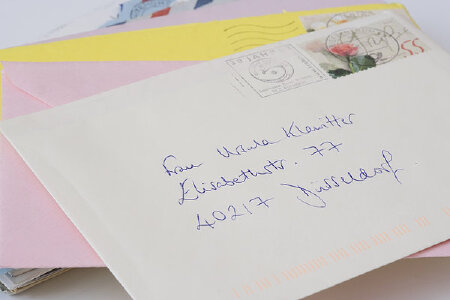 55
Frau Ursula Klawitter
Elisabethstr. 77
40217 Düsseldorf.